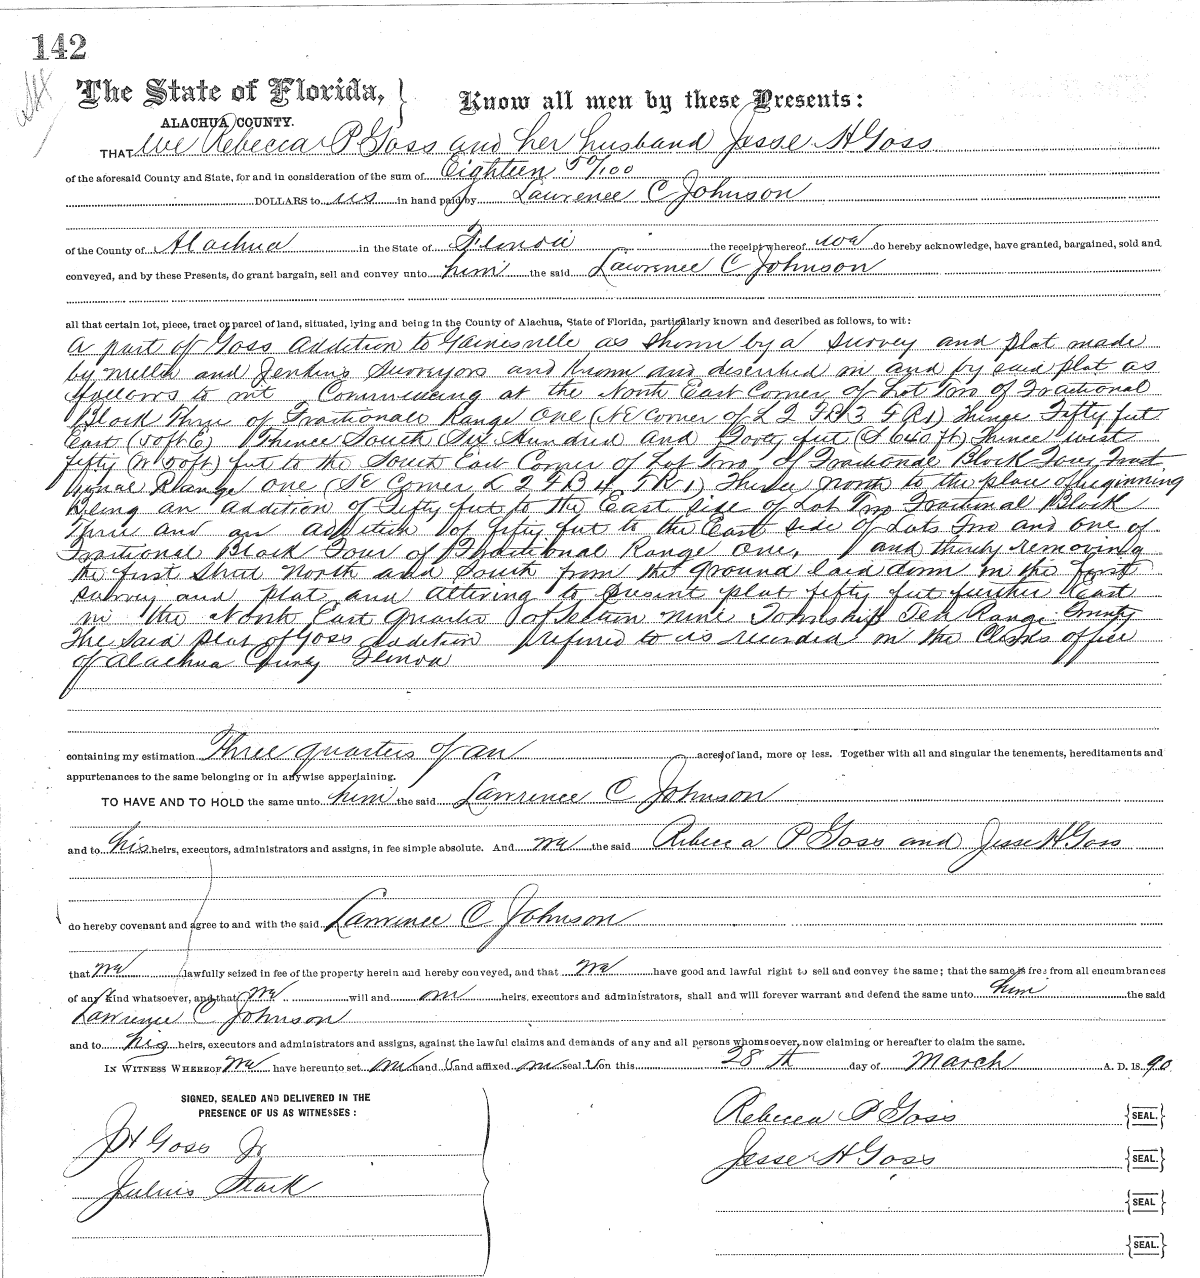 142
The State of Florida,
ALACHUA COUNTY.
Know all men by these Presents:
THAT We Rebecca P Goss and her husband Jesse H Goss
of the aforesaid County and State, for and in consideration of the sum of Eighteen 50/100
DOLLARS to us in hand paid by Lawrence C Johnson
of the County of Alachua in the State of Florida the receipt whereof we do hereby acknowledge, have granted, bargained, sold and
conveyed, and by these Presents, do grant bargain, sell and convey unto him the said Lawrence C Johnson
all that certain lot, piece, tract or parcel of land, situated, lying and being in the County of Alachua, State of Florida, particularly known and described as follows, to wit:
A part of Goss Addition to Gainesville as shown by a survey and plat made
by Miller and Jenkins Surveyors and Known and described in and by said plat as
follows to wit Commencing at the North East Corner of Lot Two of Fractional
Block Three of Fractional Range One (NE Corner of L 2 F B 3 F R 1) Thence Fifty feet
East (50 ft E) Thence South Six Hundred and Forty feet (S 640 ft) Thence west
fifty (W 50 ft) feet to the South East Corner of Lot Two of Fractional Block Four Fract
ional Range One (SE Corner L 2 F B 4 F R 1) Thence North to the place of beginning
Being an addition of Fifty feet to the East side of Lot Two Fractional Block
Three and an Addition of fifty feet to the East side of Lots Two and one of
Fractional Block Four of Fractional Range One, and thereby removing
the first Street North and South from the ground laid down in the first
survey and plat and altering to present plat fifty feet further East
in the North East Quarter of Section nine Township Ten Range
County
The said plat of Goss addition refered to is recorded in the Clerks office
of Alachua County Florida
containing my estimation Three quarters of an acres of land, more or less. Together with all and singular the tenements, hereditaments and
appurtenances to the same belonging or in anywise appertaining.
TO HAVE AND TO HOLD the same unto him the said Lawrence C Johnson
and to his heirs, executors, administrators and assigns, in fee simple absolute. And we the said Rebecca P Goss and Jesse H Goss
do hereby covenant and agree to and with the said Lawrence C Johnson
that we lawfully seized in fee of the property herein and hereby conveyed, and that we have good and lawful right to sell and convey the same; that the same is free from all encumbrances
of any kind whatsoever, and that we will and our heirs, executors and administrators, shall and will forever warrant and defend the same unto him the said
Lawrence C Johnson
and to his heirs, executors and administrators and assigns, against the lawful claims and demands of any and all persons whomsoever, now claiming or hereafter to claim the same.
IN WITNESS WHEREOF We have hereunto set our hand s and affixed our seal s on this 28th day of March A. D. 1890
SIGNED, SEALED AND DELIVERED IN THE
PRESENCE OF US AS WITNESSES:
J H Goss Jr
Julius Stark
Rebecca P Goss {SEAL.}
Jesse H Goss {SEAL.}
{SEAL}
{SEAL.}